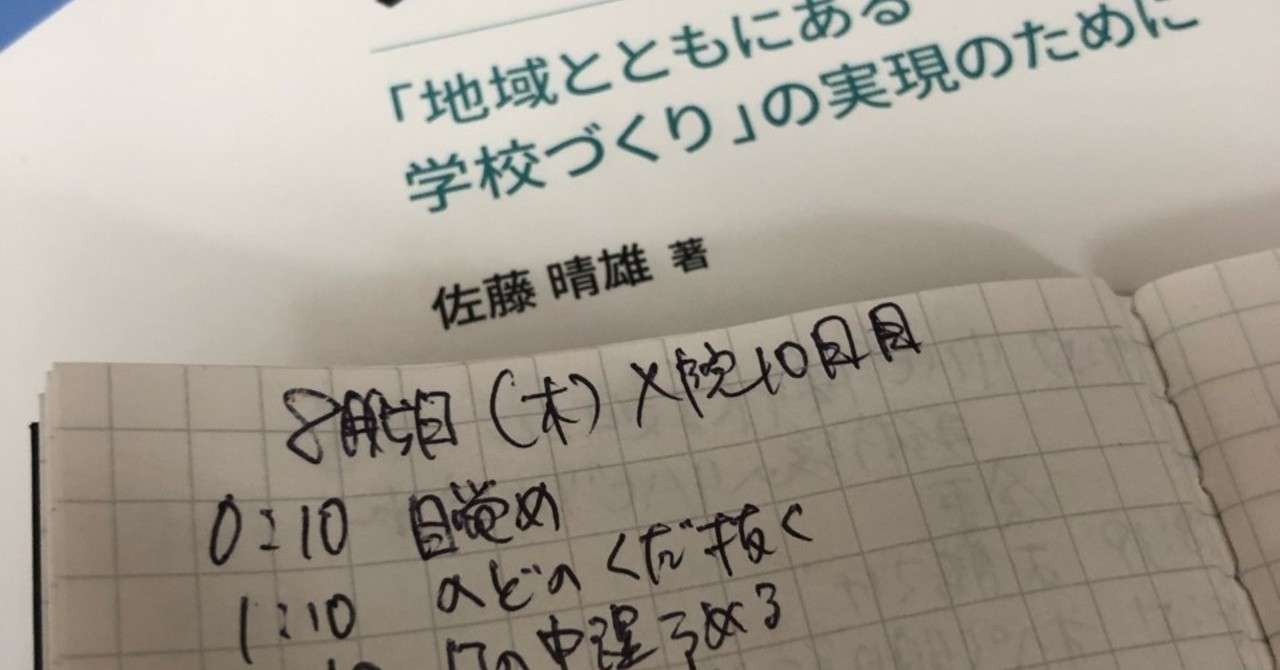 「地域とともにある
学校づくり」の実現のために
佐藤 晴雄 著
(木) 入院10日目
0:10 目覚め
1:10 のどのくだ抜く